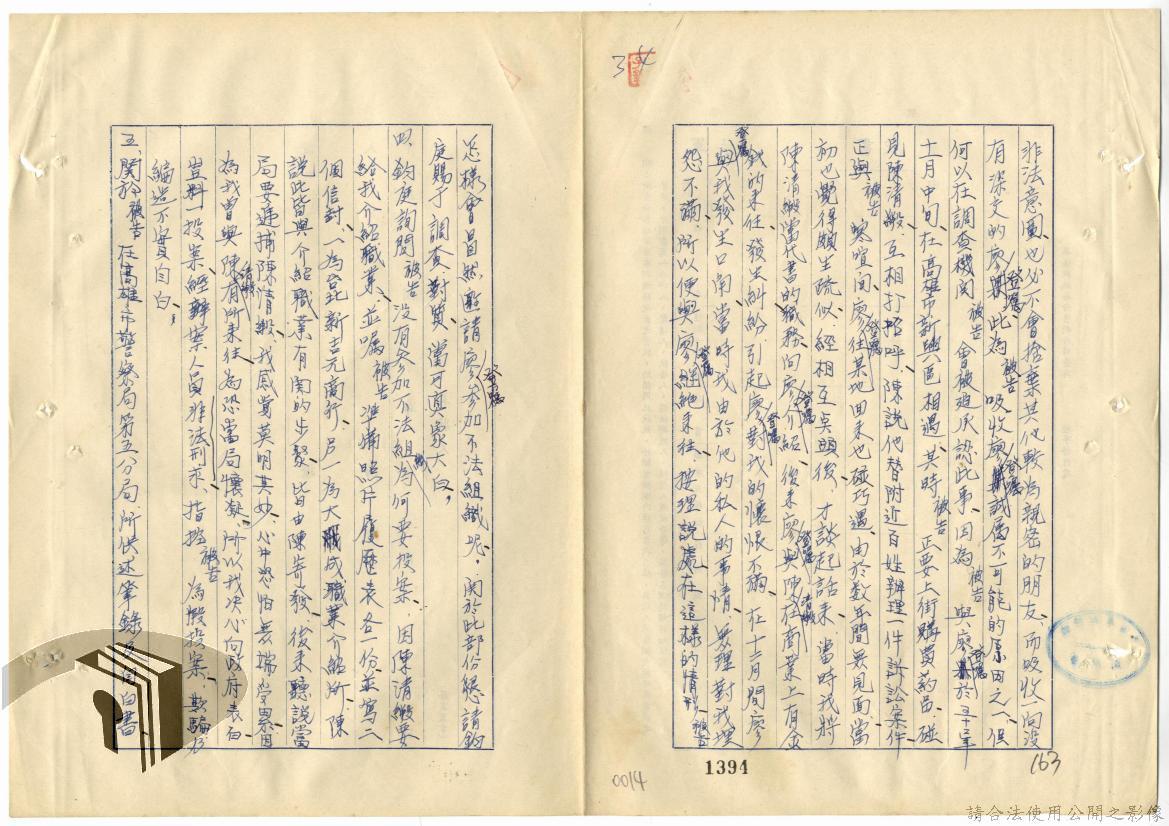 非法意圖也必不會捨棄其他較為親密的朋友、而吸收一向沒
有深交的廖登矚、此為被告吸收廖登矚誠屬不可能的原因之一、但
何以在調查機関被告會被迫承認此事、因為被告與廖登矚於五十三年
十一月中旬、在高雄市新興區相遇、其時被告正要上街購買葯品、碰
見陳清緞、互相打招呼、陳說他替附近百姓辦理一件訴訟案件
正與被告寒喧間、廖登矚往某地回來也碰巧遇、由於数年間無見面當
初也覺得頗生疏似、經相互点頭後、才談起話來、當時我將
陳清緞當代書的職務向廖登矚介紹、後來廖登矚與陳清緞在商業上有金
錢的來往發生糾紛、引起廖登矚對我的懷恨不滿、在十二月間廖登矚
與我發生口角、當時我由於他的私人的事情、無理對我埋
怨不滿、所以便與廖登矚継絶來往、按理說處在這樣的情形、被告
怎樣會昌然邀請廖登矚參加不法組織呢、関於此部份懇請鈞
庭賜于調查、對質、當可真象大白、
四、鈞庭詢問被告沒有參加不法組織為何要投案、因陳清緞要
給我介紹職業、並囑被告準備照片履歷表各一份、並寫二
個信封、一為台北新吉元商行、另一為大成職業介紹所、陳
說此皆與介紹職業有関的步驟、皆由陳寄發、後來聽說當
局要逮捕陳清緞、我感覚莫明其妙、心中恐怕無端受累、因
為我曾與陳清緞有所來往、為恐當局懷疑、所以我決心向政府表白
豈料一投案、經辦案人員非法刑求、指控被告為假投案、欺騙乃
編造不實自白、
五、関於被告在高雄市警察局第五分局所供述筆錄及自白書、
1394
0014
163
34
請合法使用公開之影像